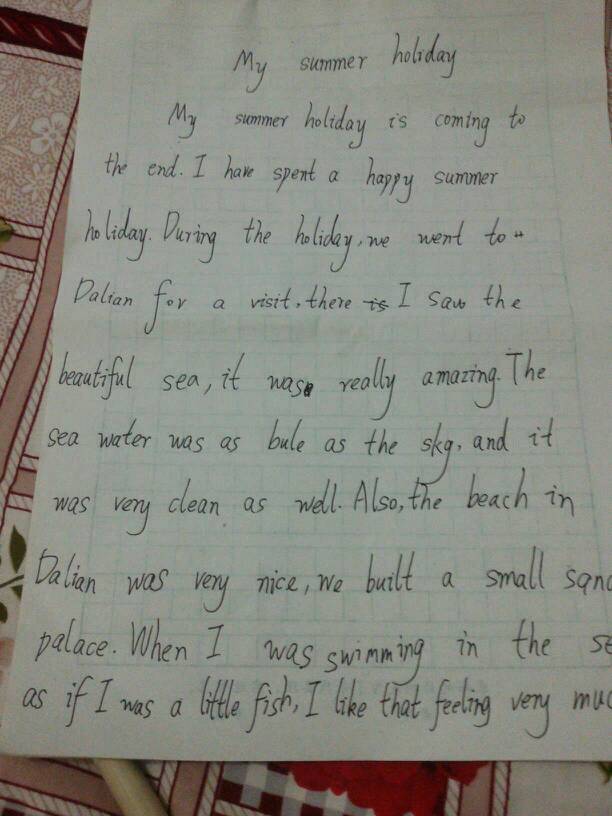 My summer holiday
My summer holiday is coming to
the end. I have spent a happy summer
holiday. During the holiday, we went to
Dalian for a visit, there is I saw the
beautiful sea, it was really amazing. The
sea water was as bule as the sky, and it
was very clean as well. Also, the beach in
Dalian was very nice, we built a small
palace. When I was swimming in the
as if I was a little fish, I like that feeling very